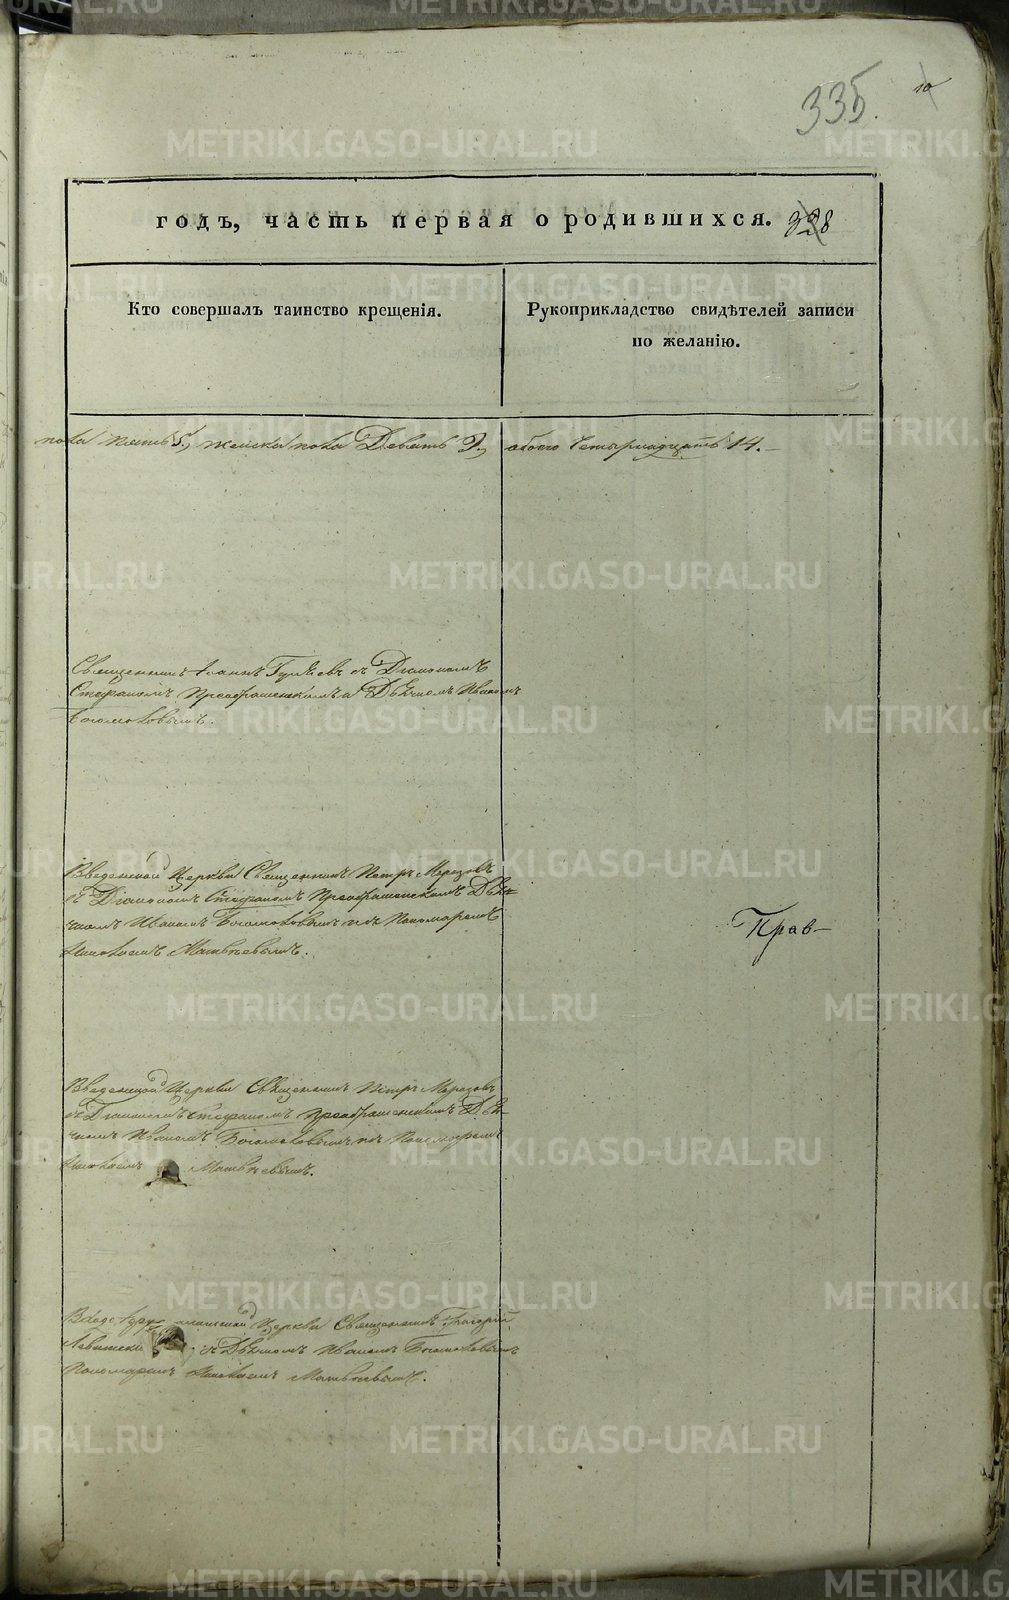 335.
10
годъ, часть первая о родившихся. 328
Кто совершалъ таинство крещенія.
Рукоприкладство свидѣтелей записи
по желанію.
пола пять 5, женска пола Девять 9, обоего Четырнадцать 14.
Священникъ Іоаннъ съ Діакономъ
Стефаномъ Преображенскимъ и Дьячкомъ Иваномъ
Богомоловымъ.
Введенской Церкви Священникъ Петръ Морозовъ
съ Діакономъ Стефаномъ Преображенскимъ Дья-
чкомъ Иваномъ Богомоловымъ и Пономаремъ
Матвѣевымъ.
Прав-
Введенской Церкви Священникъ Петръ Морозовъ
съ Діакономъ Стефаномъ Преображенскимъ Дья-
чкомъ Иваномъ Богомоловымъ и Пономаремъ
Матвѣевымъ.
Церкви Священникъ Григорій
съ Дьячкомъ Иваномъ Богомоловымъ
Матвѣевымъ.
METRIKI.GASO-URAL.RU